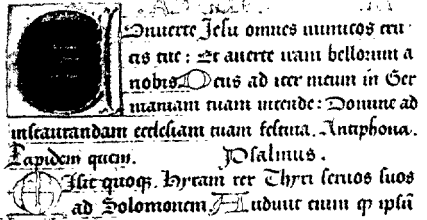 Conuerte Jesu omnes inimicos cru-
cis tue : Et auerte iram bellorum a
nobis Deus ad iter meum in Ger
maniam tuam intende : Domine ad
instaurandam ecclesiam tuam festina. Antiphona.
Lapidem quem. Psalmus.
Misit quoqꝫ Hyram rex Thyri seruos suos
ad Solomonem Audiuit enim ꝙ ipsū